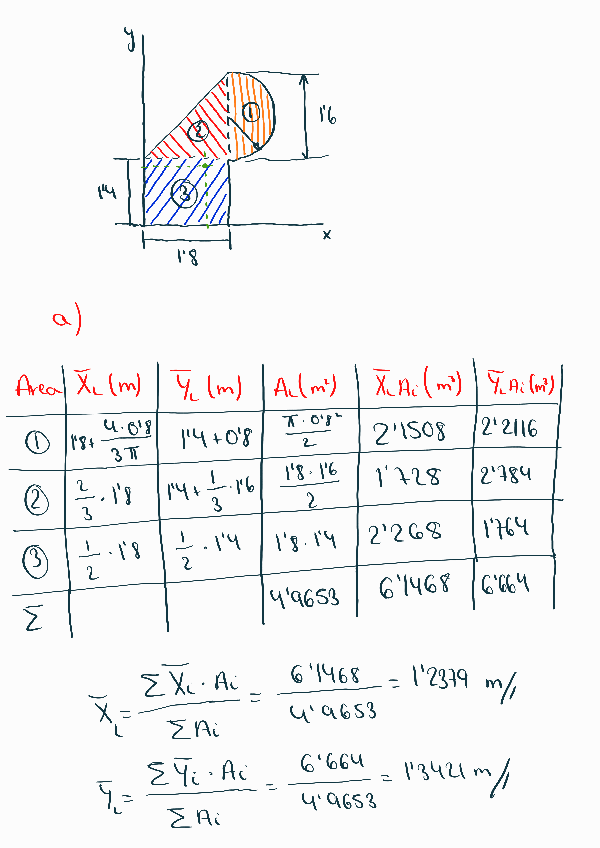 y
1'6
①
②
1'4
③
x
1'8
a)
Area X̄ᵢ (m) Ȳᵢ (m) Aᵢ (m²) X̄ᵢ Aᵢ (m³) Ȳᵢ Aᵢ (m³)
① 1'8 + 4·0'8/3π 1'4 + 0'8 π·0'8²/2 2'1508 2'2116
② 2/3 · 1'8 1'4 + 1/3 · 1'6 1'8 · 1'6/2 1'728 2'784
③ 1/2 · 1'8 1/2 · 1'4 1'8 · 1'4 2'268 1'764
Σ 4'9653 6'1468 6'664
X̄ᵢ = ΣX̄ᵢ · Aᵢ / ΣAᵢ = 6'1468 / 4'9653 = 1'2379 m//
Ȳᵢ = ΣȲᵢ · Aᵢ / ΣAᵢ = 6'664 / 4'9653 = 1'3421 m//